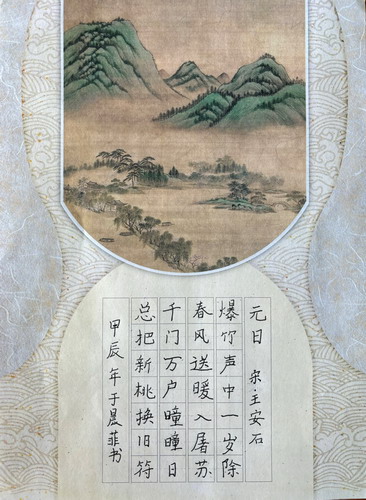 元日 宋·王安石
爆竹声中一岁除
春风送暖入屠苏
千门万户曈曈日
总把新桃换旧符
甲辰年于晨菲书